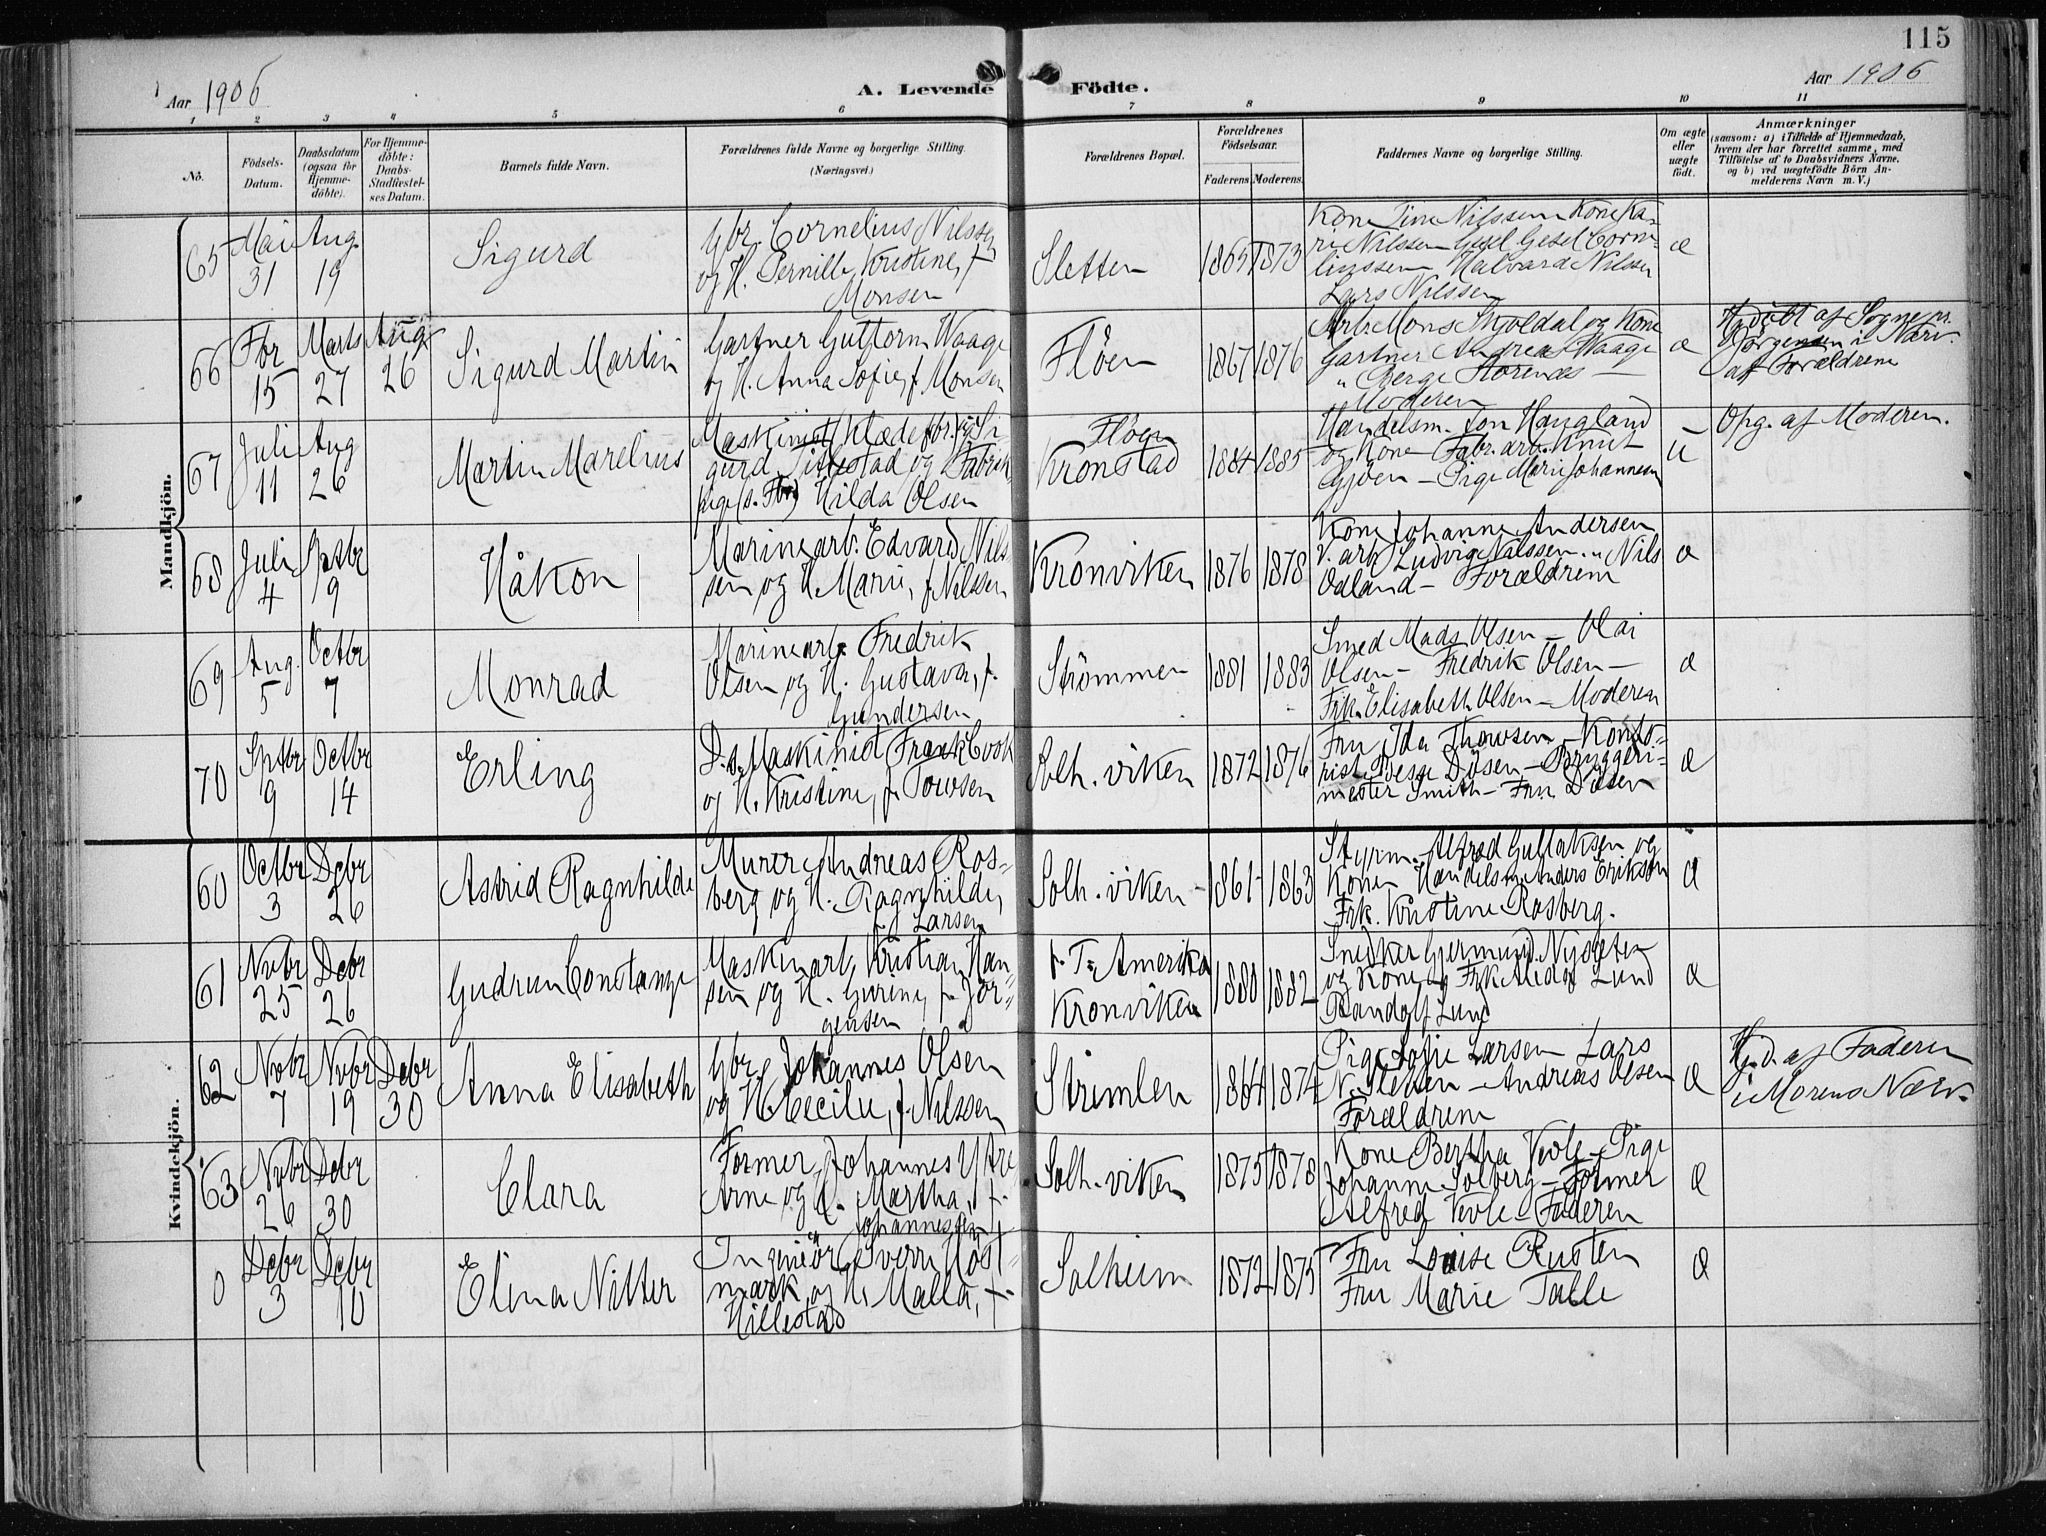 115
Aar 1906
A. Levende Födte.
Aar 1906
1 2 3 4 5 6 7 8 9 10 11
No.
Födsels-
Datum.
Daabsdatum
(ogsaa for
Hjemme-
döbte).
For Hjemme-
döbte:
Daabs-
Stadfæstel-
ses Datum.
Barnets fulde Navn.
Forældrenes fulde Navne og borgerlige Stilling.
(Næringsvei.)
Forældrenes Bopæl.
Forældrenes
Födselsaar.
Faderens. Moderens.
Faddernes Navne og borgerlige Stilling.
Om ægte
eller
uægte
födt.
Anmærkninger
(saasom: a) i Tilfælde af Hjemmedaab,
hvem der har forrettet samme, med
Tilföielse af to Daabsvidners Navne.
og b) ved uægtefödte Börn An-
melderens Navn m. V.)
Mandkjön.
65
Mai
31
Aug.
19
Sigurd
Gbr. Cornelius Nilssen
og H. Pernille Kristine, f.
Monsen
Sletten
1865
1873
Kone Tine Nilssen Kone Ka-
ri Nilssen Gesel Corne-
liussen Halvard Nilssen
Lars Nilssen
æ
66
Fbr
15
Marts
27
Aug
26
Sigurd Martin
Gartner Guttorm Waage
og H. Anna Sofie, f. Monsen
Fløen
1867
1876
Arb. Mons Skjoldal og Kone
Gartner Andreas Waage
" Berge Storenæs —
Moderen
æ
Hjdøbt af Sognepr.
Jørgensen i Nærv.
af Forældrene
67
Juli
11
Aug
26
Martin Marelius
Maskinist Si-
gurd Tittestad og Fabrik-
pige Hilda Olsen
Fløen
Kronstad
1884
1885
Handelsm. Jon Haugland
og Kone — Fabr. arb. Knut
Gjøen — Pige Marie Johannesen
u
Opg. af Moderen.
68
Juli
4
Sptbr
9
Håkon
Marinearb. Edvard Nils-
sen og H. Marie, f. Nilssen
Kronviken
1876
1878
Kone Johanne Andersen
V. arb. Ludvig Nilssen " Nils
Ødland — Forældrene
æ
69
Aug.
5
Octbr
7
Monrad
Marinearb. Fredrik
Olsen og H. Gustava, f.
Gundersen
Strømmen
1881
1883
Smed Mads Olsen — Olai
Olsen — Fredrik Olsen —
Frk. Elisabeth Olsen — Moderen
æ
70
Sptbr
9
Octbr
14
Erling
D. s. Maskinist Frank Cook
og H. Kristine, f. Towsen
Solh. viken
1872
1876
Fru Ida Thowsen — Konto-
rist Døsen — Bryggeri-
mester Smith — Fru Døsen
æ
Kvindekjön.
60
Octbr
3
Debr
26
Astrid Ragnhilde
Murer Andreas Ros-
berg og H. Ragnhilde,
f. Larsen
Solh. viken
1861
1863
Styrm. Alfred Gullaksen og
Kone Handelsm. Anders Erikson
Frk. Kristine Rosberg.
æ
61
Nvbr
25
Debr
26
Gudrun Constanse
Maskinarb. Kristian Han-
sen og H. Gurine, f. Jør-
gensen
f. T. Amerika
Kronviken
1880
1882
Snedker Gjermund Nygaten
og Kone Frk Alida Lund
Randolf Lund
æ
62
Nvbr
7
Nvbr
19
Debr
30
Anna Elisabeth
Gbr. Johannes Olsen
og H. Cecilie, f. Nilssen
Strimlen
1864
1874
Pige Sofie Larsen Lars
N. Sletten — Andreas Olsen
Forældrene
æ
Hj.d. af Faderen
i Morens Nærv.
63
Nvbr
26
Debr
30
Clara
Former Johannes Ytre
Arne og H. Martha, f.
Johannessen
Solh. viken
1875
1878
Kone Bertha Vevle — Pige
Johanne Solberg — Former
Alfred Vevle — Faderen
æ
0
Debr
3
Debr
10
Elina Nitter
Ingeniør Sverre Høst-
mark og H. Malla, f.
Hillestad
Solheim
1872
1875
Fru Louise Rusten
Fru Marie Talle
æ